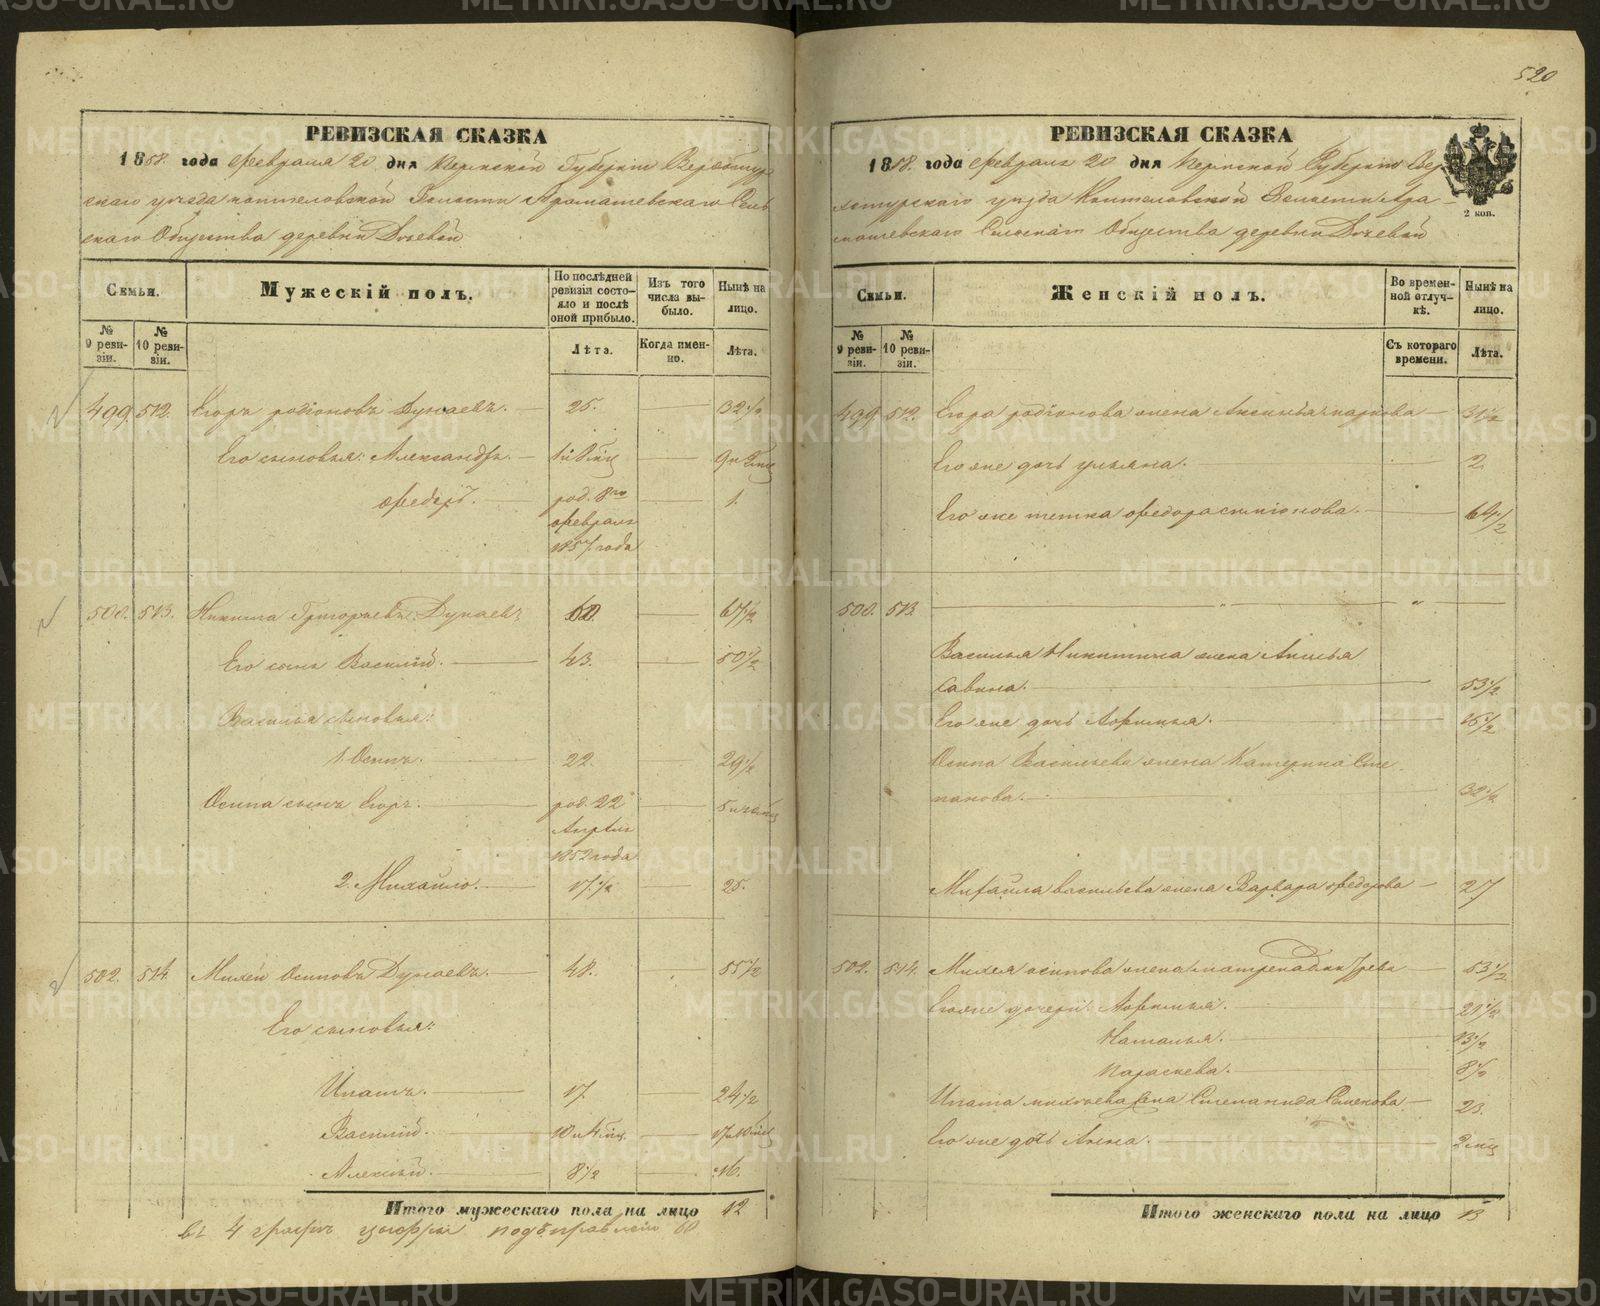 520
РЕВИЗСКАЯ СКАЗКА
1858. года Февраля 20 дня Пермской Губернiи Верхотур
скаго уезда Коптеловской Волости Арамашевскаго Сель
скаго Общества деревни
Семьи.
Мужескiй полъ.
По послѣдней ревизiи состо-
яло и послѣ
оной прибыло.
Изъ того
числа вы-
было.
Нынѣ на
лицо.
№
9 реви-
зiи.
№
10 реви-
зiи.
Лѣта.
Когда имен-
но.
Лѣта.
499. 512. Егоръ Родiоновъ Дунаевъ. 25. 32 1/2
Его сыновья: Александръ.
Федоръ. род. 8го 1.
Февраля
1857 года
500. 513. Никита Григорьевъ Дунаевъ 60. 67 1/2
Его сынъ Василiй. 43. 50 1/2
Василья сыновья:
1 Осипъ. 22. 29 1/2
Осипа сынъ Егоръ. род. 22
Апрѣля
1852 года
2. Михайло. 17 1/2 25.
502. 514. Михей Осиповъ Дунаевъ. 48. 55 1/2
Его сыновья:
Ипатъ. 17. 24 1/2
Василiй.
Алексѣй. 8 1/2 16.
Итого мужескаго пола на лицо 12
въ 4 графѣ цыфры подъправленiю 60
РЕВИЗСКАЯ СКАЗКА
1858. года Февраля 20 дня Пермской Губернiи Вер
хотурскаго уезда Коптеловской Волости Ара-
машевскаго Сельскаго Общества деревни
2 коп.
Семьи.
Женскiй полъ.
Во времен-
ной отлуч-
кѣ.
Нынѣ на
лицо.
№
9 реви-
зiи.
№
10 реви-
зiи.
Съ котораго
времени.
Лѣта.
499. 512. Егора Родiонова жена Аксинья Маркова 31 1/2
Его же дочь Ульяна. 2.
Его же тетка Федора Симiонова. 64 1/2
500. 513. " "
Василья Никитина жена
Савина. 53 1/2
Его же дочь Афимья. 16 1/2
Осипа Васильева жена Катерина Сте
панова. 32 1/2
Михайла Васильева жена Варвара Федорова 27
502. 514. Михея Осипова жена Матрена 53 1/2
Его же дочери: Афимья. 21 1/2
Наталья. 13 1/2
Параскева. 8 1/2
Ипата Михеева жена Степанида Семенова 23.
Его же дочь Анна.
Итого женскаго пола на лицо 13
METRIKI.GASO-URAL.RU